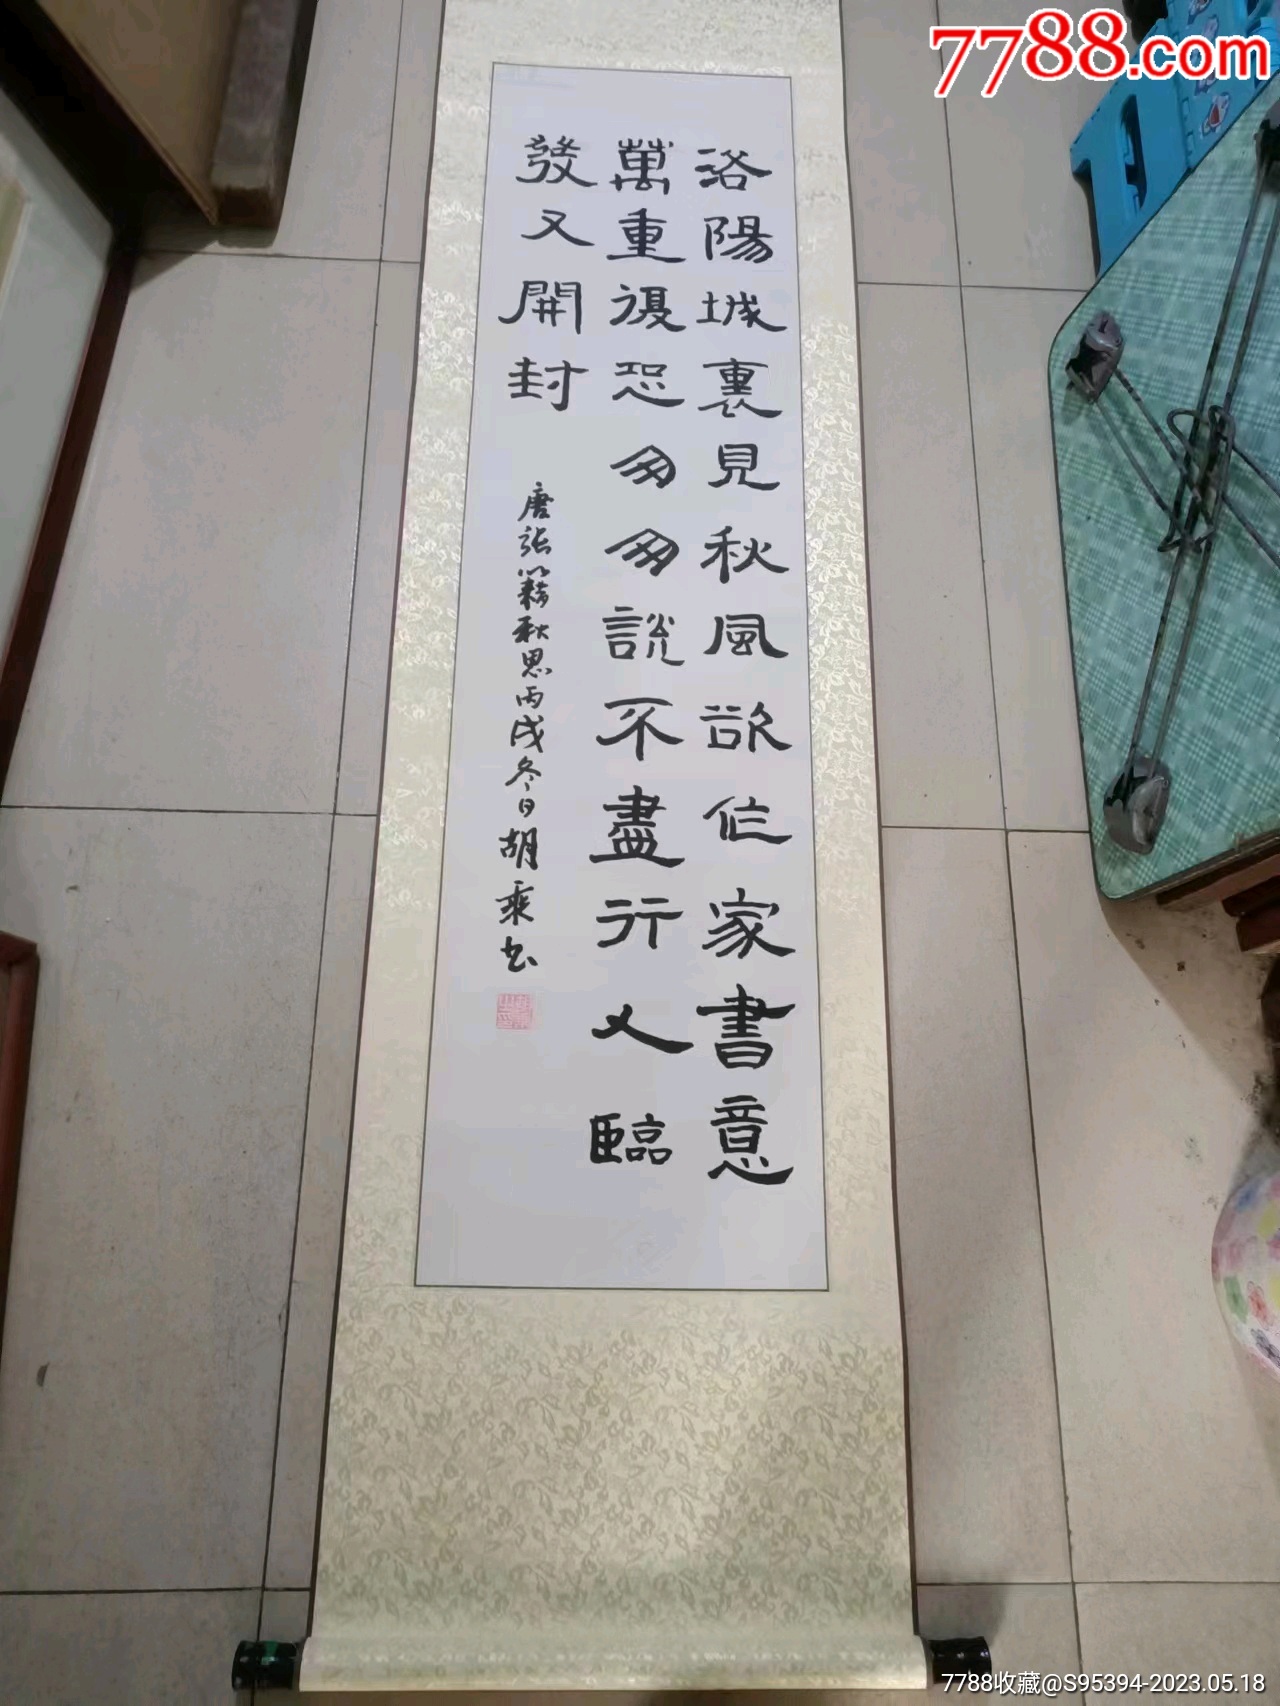 7788.com
洛陽城裏見秋風欲作家書意
萬重復恐匆匆說不盡行人臨
發又開封
唐張籍秋思丙戌冬日胡秉书
7788收藏@S95394-2023.05.18